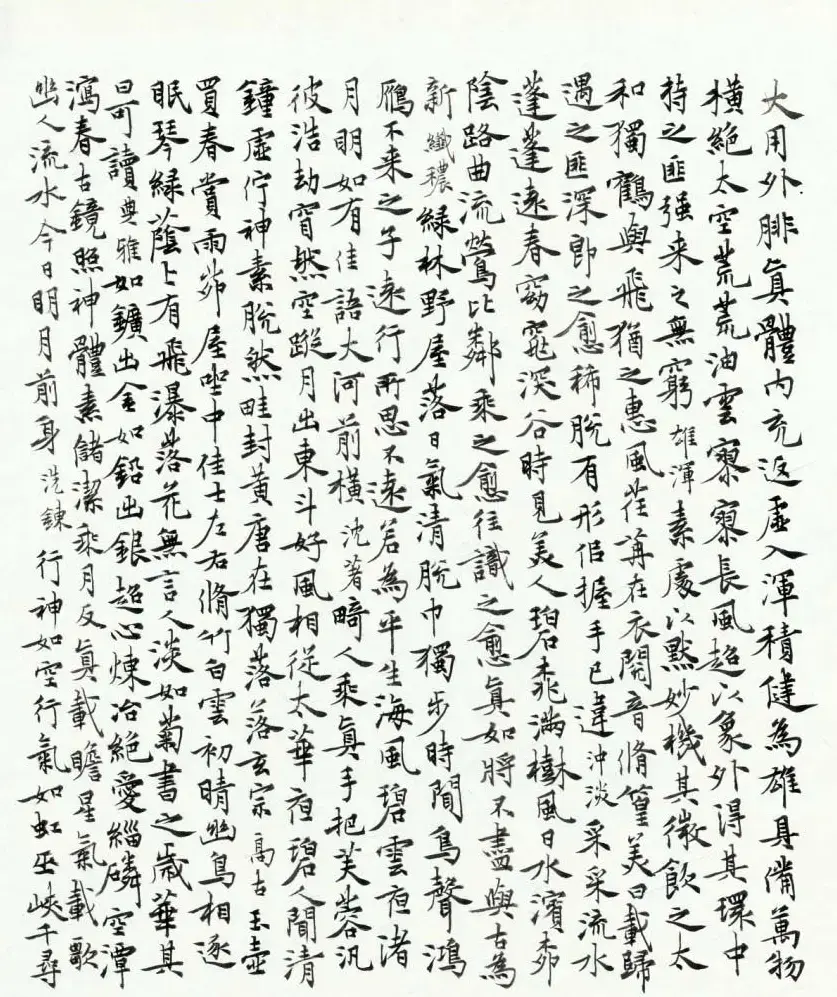 大用外腓真體内充返虛入渾積健為雄具備萬物
橫絕太空荒荒油雲寥寥長風超以象外得其環中
持之匪强来之無窮 雄渾 素處以默妙機其微飲之太
和獨鶴與飛猶之惠風荏苒在衣閱音脩篁美曰載歸
遇之匪深即之愈稀脫有形似握手已違 沖淡 采采流水
蓬蓬遠春窈窕深谷時見美人碧桃滿樹風日水濱柳
陰路曲流鶯比鄰乘之愈往識之愈真如將不盡與古為
新 纖穠 綠林野屋落日氣清脫巾獨步時聞鳥聲鴻
鴈不来之子遠行所思不遠若為平生海風碧雲夜渚
月明如有佳語大河前橫 沈著 畸人乘真手把芙蓉汎
彼浩劫窅然空蹤月出東斗好風相從太華夜碧人聞清
鐘虛佇神素脫然畦封黃唐在獨落落玄宗 高古 玉壺
買春賞雨茆屋坐中佳士左右脩竹白雲初晴幽鳥相逐
眠琴綠蔭上有飛瀑落花無言人淡如菊書之歲華其
曰可讀 典雅 如鑛出金如鉛出銀超心煉冶絕愛緇磷空潭
瀉春古鏡照神體素儲潔乘月反真載瞻星氣載歌
幽人流水今日明月前身 洗鍊 行神如空行氣如虹巫峽千尋